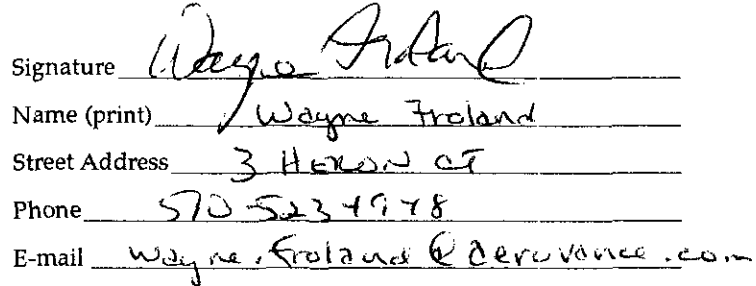 Signature Wayne Froland
Name (print) Wayne Froland
Street Address 3 HERON CT
Phone 570-523-4948
E-mail wayne.froland@aerovance.com